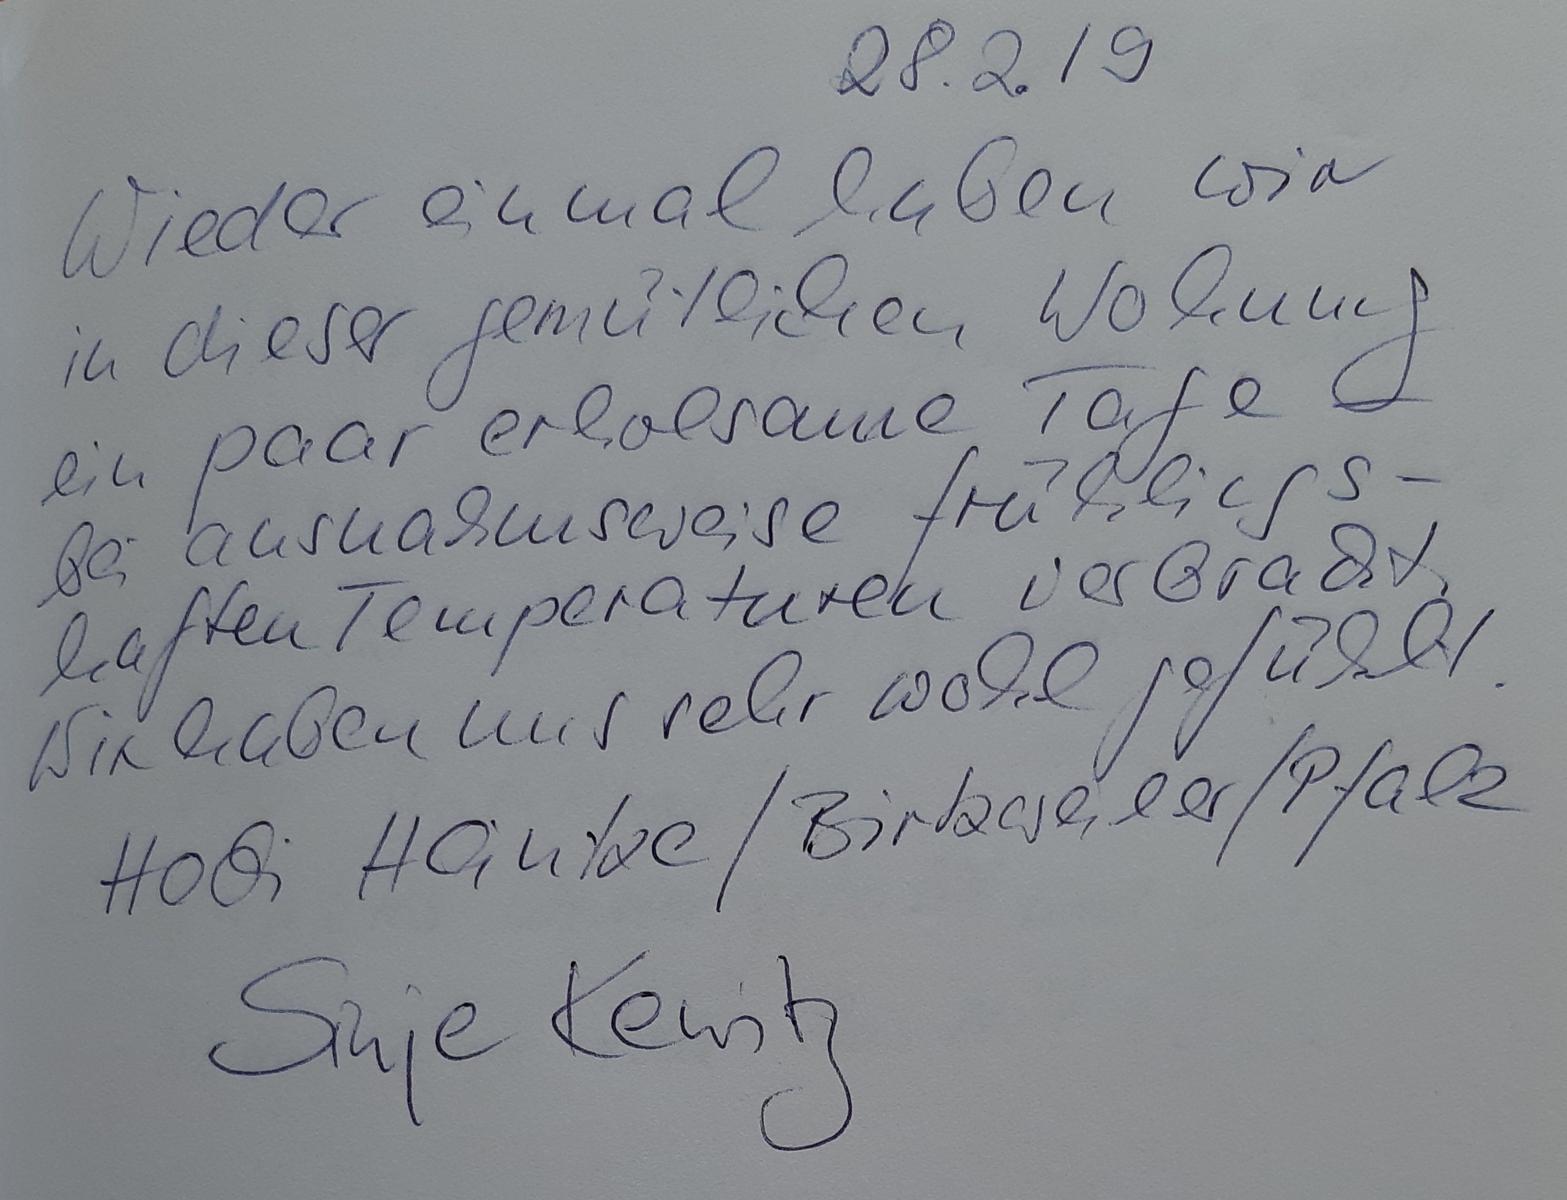 28.2.19
Wieder einmal haben wir
in dieser gemütlichen Wohnung
ein paar erholsame Tage
bei ausnahmsweise frühlings-
haften Temperaturen verbracht.
Wir haben uns sehr wohl gefühlt.
/Birkweiler/Pfalz
Sinje Kewitz